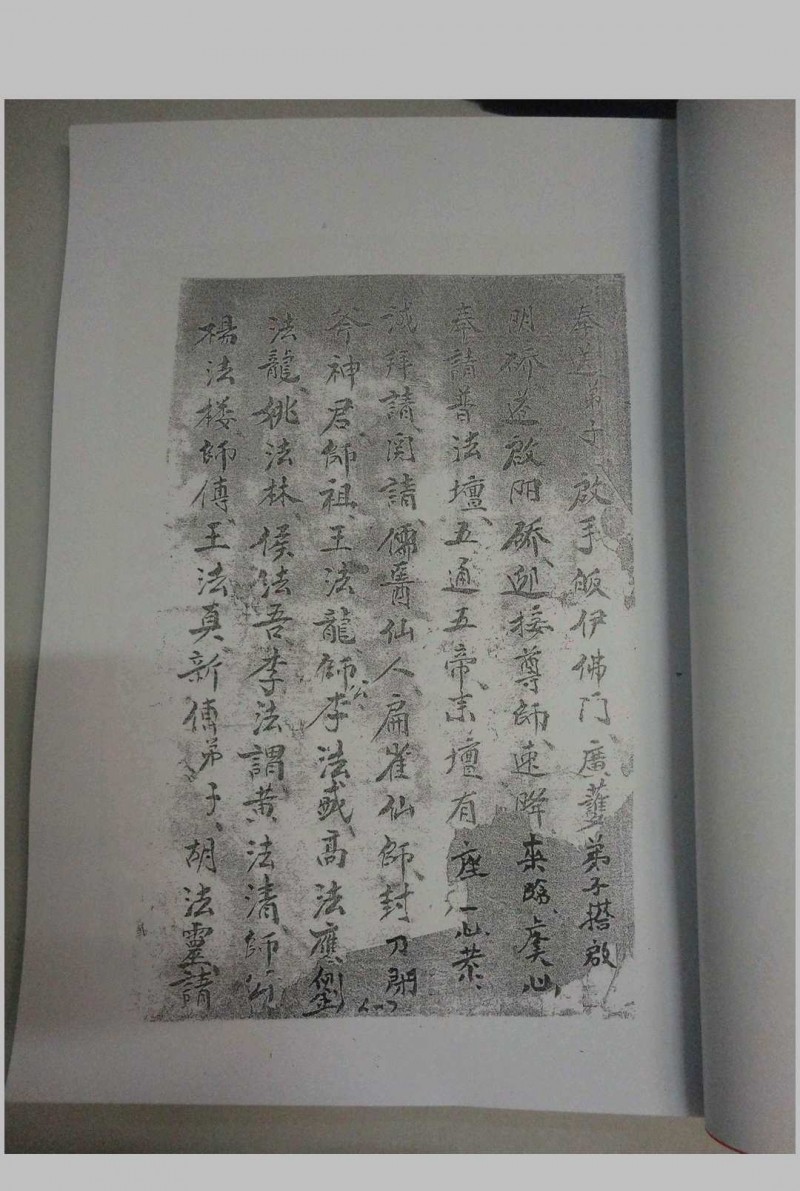 奉送弟子啟手皈伊佛門廣弟子搭啟
明桥造啟阴桥迎接尊師速降來臨虔心
奉請普法壇五通五帝來壇有座一心恭
請拜請儒醫仙人扁雀仙師封刀開
斧神君師祖王法龍師公李法高法應劉
法龍姚法林侯法吾李法謂黄法清師公
楊法楼師傅王法真新傅弟子胡法靈請